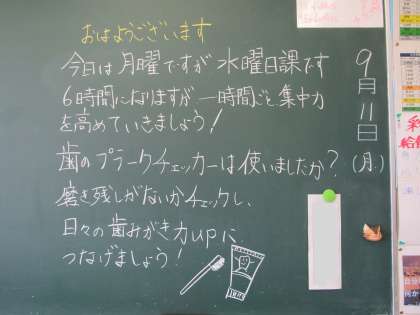 おはようございます
今日は月曜ですが水曜日課です
6時間になりますが、一時間ごと集中力
を高めていきましょう!
歯のプラークチェッカーは使いましたか?
磨き残しがないかチェックし、
日々の歯みがき力upに
つなげましょう!
9月11日(月)